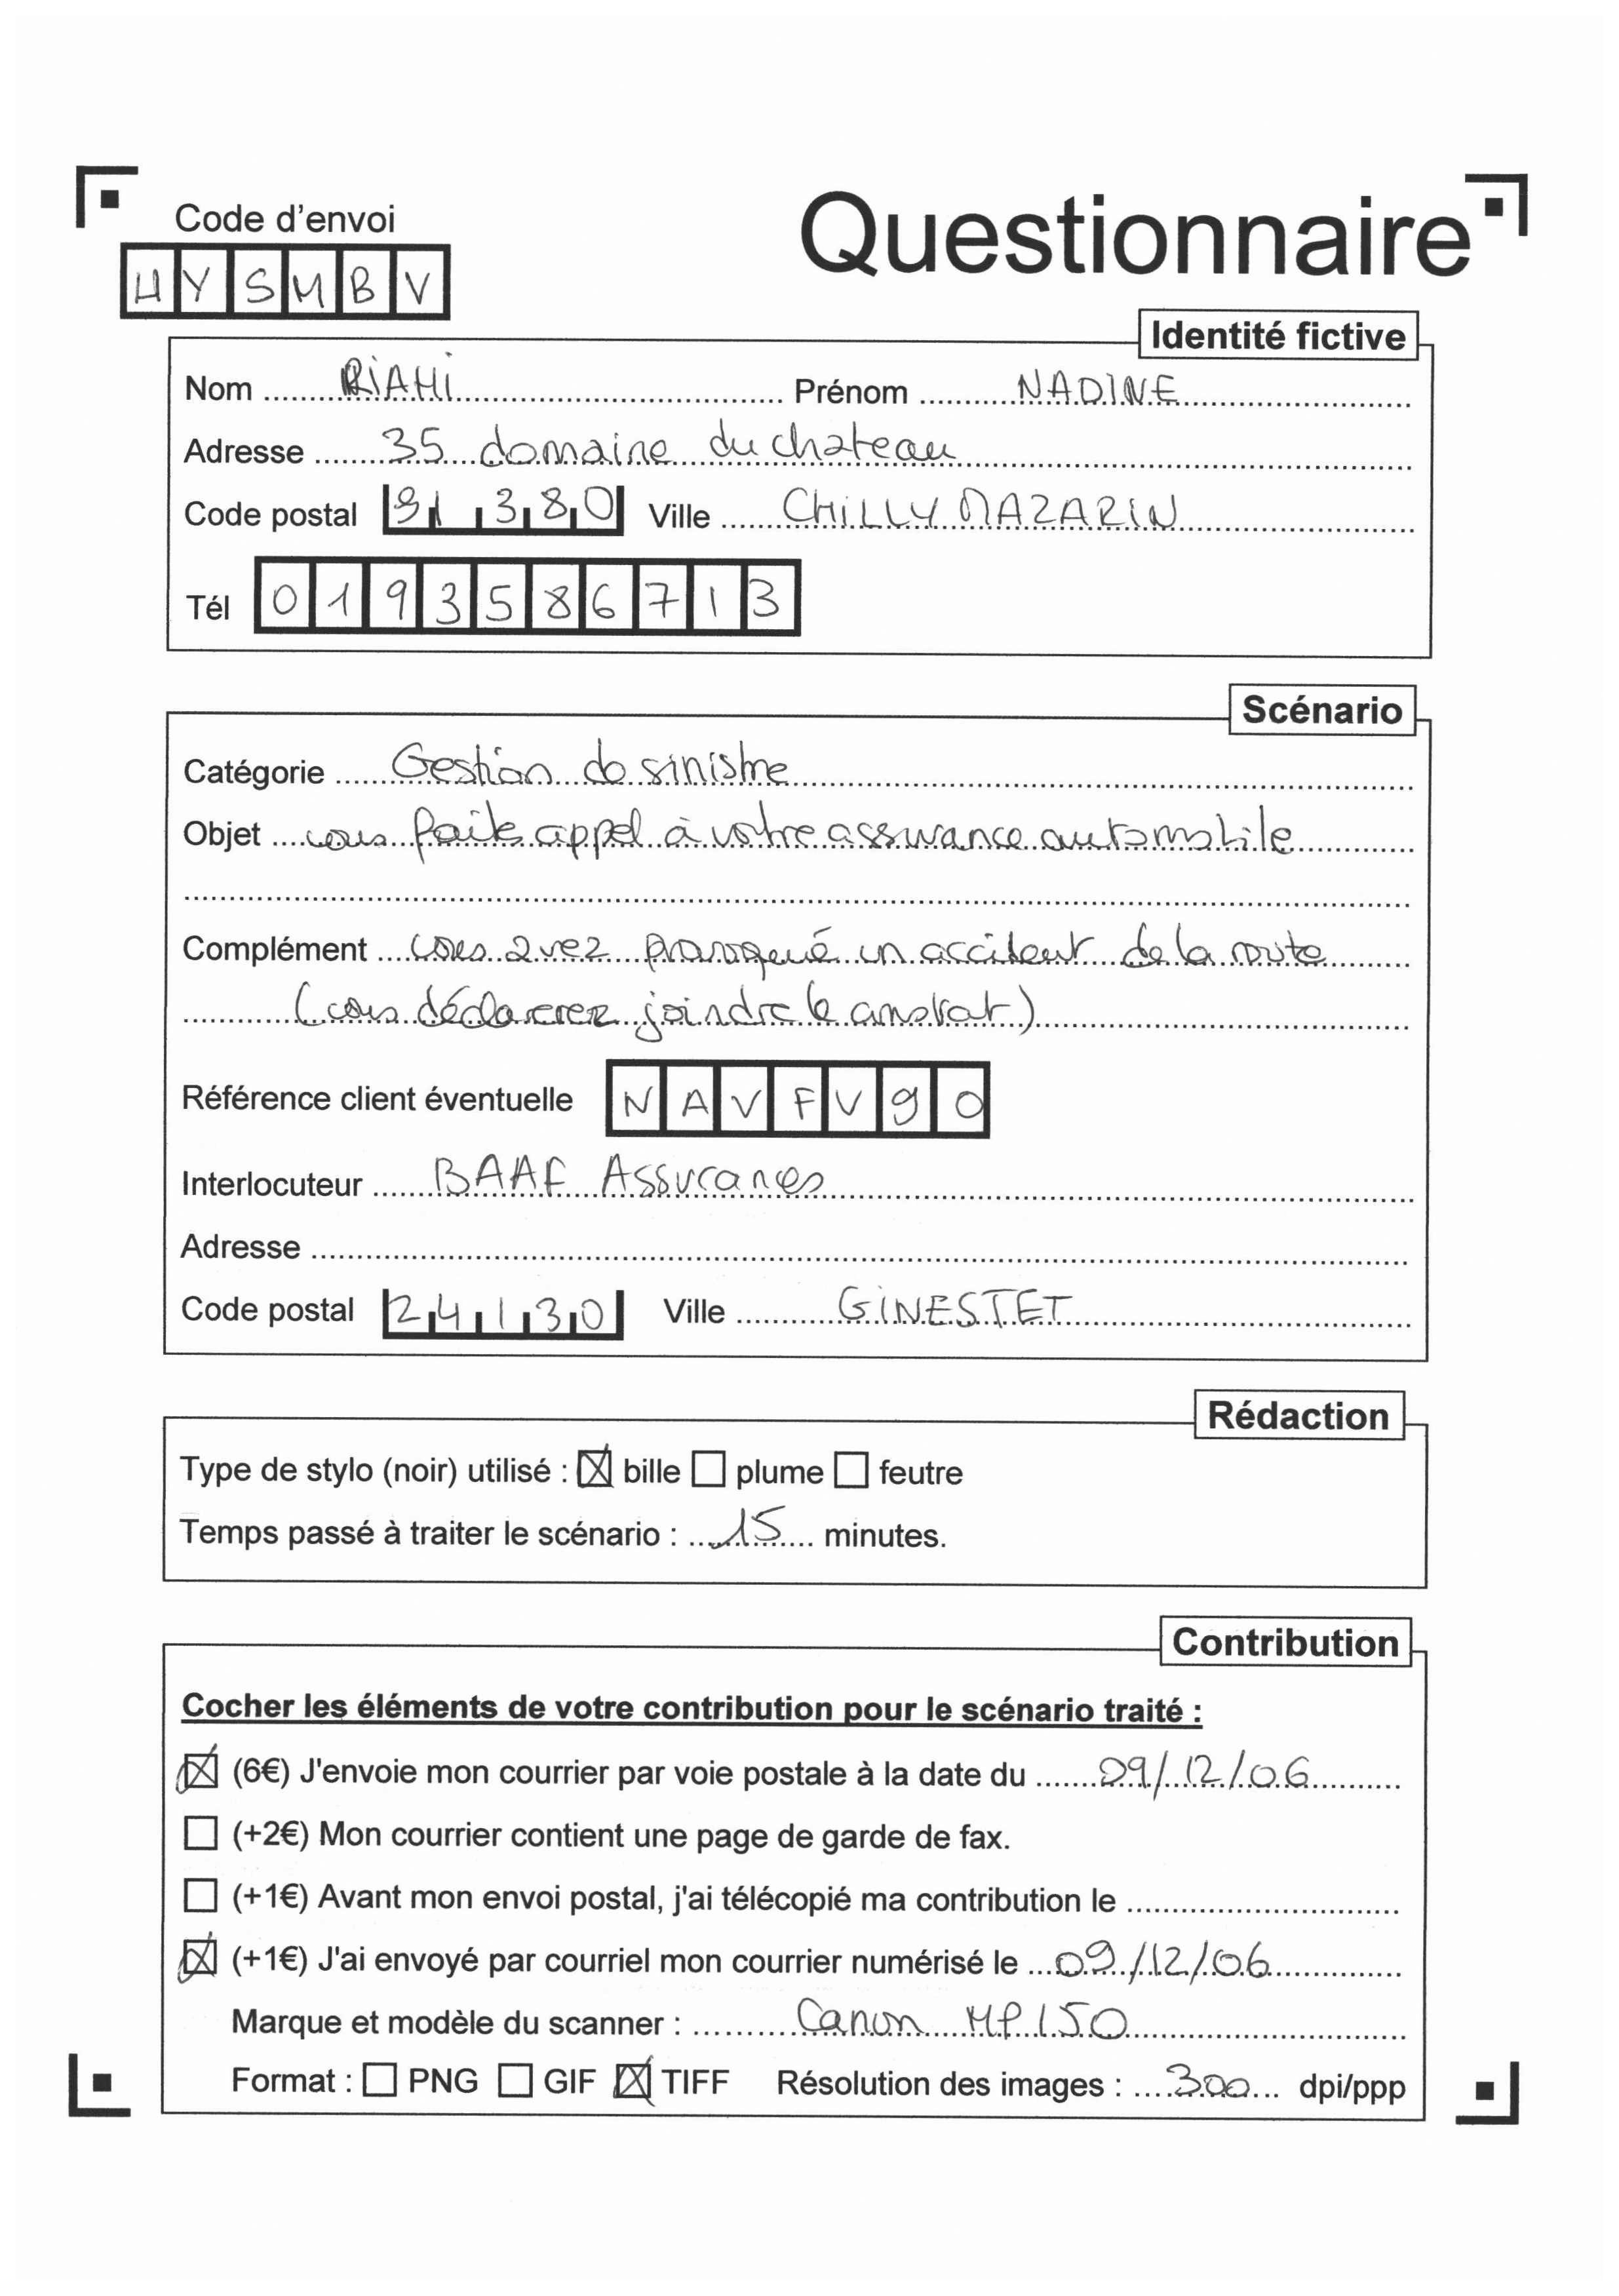 Code d'envoi
Questionnaire
HYSMBV
Identité fictive
Nom RiAHi Prénom NADINE
Adresse 35 domaine du chateau
Code postal 91380 Ville CHiLLY MAZARIN
Tél 0193586713
Scénario
Catégorie Gestion de sinistre
Objet vous faite appel à votre assurance automobile
Complément vous avez provoqué un accident de la route
(vous déclarerez joindre le constat)
Référence client éventuelle NAVFV90
Interlocuteur BAAF Assurances
Adresse
Code postal 24130 Ville GiNESTET
Rédaction
Type de stylo (noir) utilisé : ☒ bille ☐ plume ☐ feutre
Temps passé à traiter le scénario : 15 minutes.
Contribution
Cocher les éléments de votre contribution pour le scénario traité :
☒ (6€) J'envoie mon courrier par voie postale à la date du 09/12/06
☐ (+2€) Mon courrier contient une page de garde de fax.
☐ (+1€) Avant mon envoi postal, j'ai télécopié ma contribution le
☒ (+1€) J'ai envoyé par courriel mon courrier numérisé le 09/12/06
Marque et modèle du scanner : Canon MP150
Format : ☐ PNG ☐ GIF ☒ TIFF Résolution des images : 300 dpi/ppp